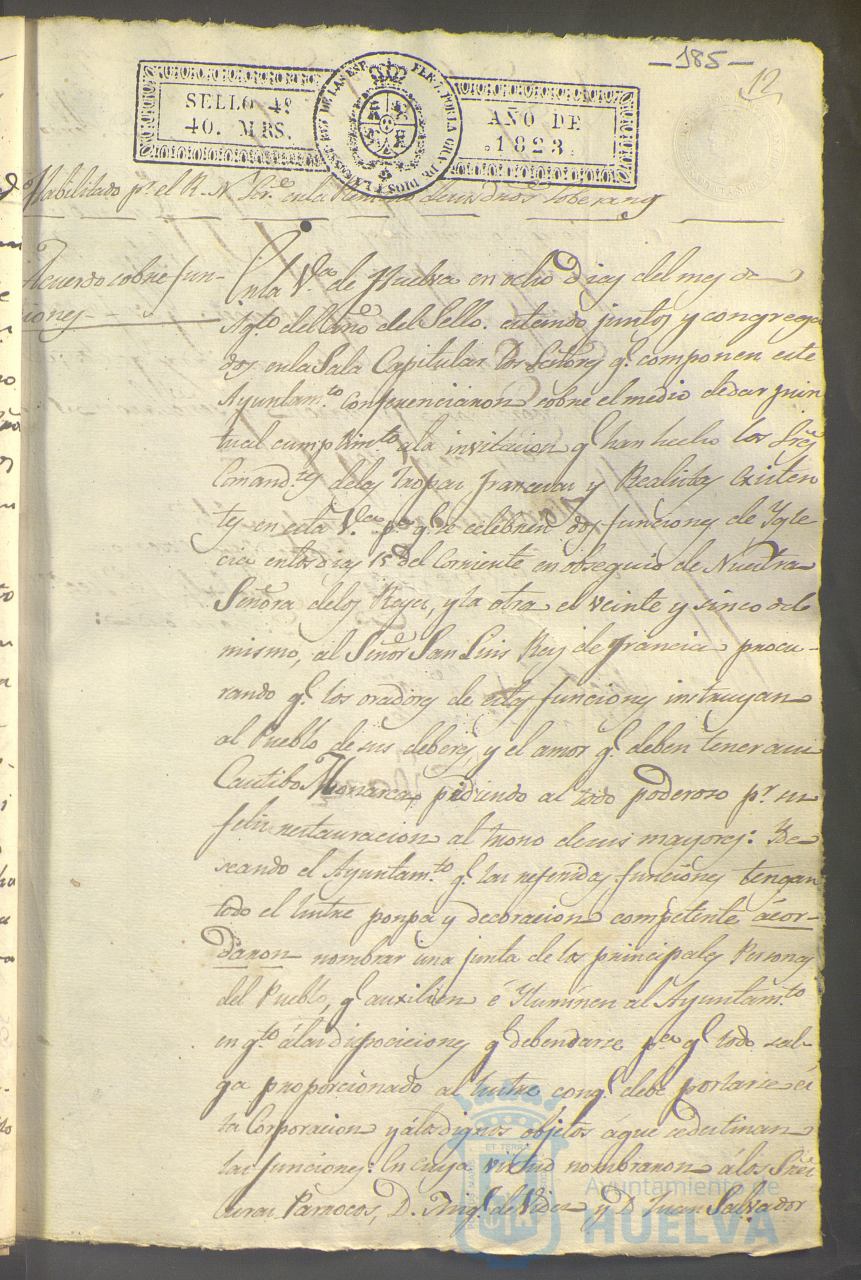 — 185 —
12
SELLO 4º
40. MRS.
FERN. 7. POR LA GRA. DE DIOS Y LA CONST. REY DE LAS ESP.
AÑO DE
1823.
Habilitado pr. el R. N. en la de sus dros Soberanos
Acuerdo sobre fun-
ciones
En la Va. de Huelva en ocho dias del mes de
Agto. del año del Sello. estando juntos y congrega
dos en la Sala Capitular los Señores q. componen este
Ayuntamto. conferenciaron sobre el medio de dar pun
tual cumplimto. a la invitacion q. han hecho los Sres.
Comandtes. de las tropas francesas y Realistas existen
tes en esta Va. pa. q. se celebren dos funciones de Ygle
cia en los dias 15 del Corriente en obsequio de Nuestra
Señora de los Reyes, y la otra el veinte y sinco del
mismo, al Señor San Luis Rey de Francia procu-
rando q. los oradores de estas funciones instruyan
al Pueblo de sus deberes, y el amor q. deben tener a su
Cautibo Monarca, pidiendo al todo poderoso pr. su
felis restauracion al trono de sus mayores: Y de
seando el Ayuntamto. q. las referidas funciones tengan
todo el lustre ponpa y decoracion competente acor-
daron nombrar una junta de los principales Personas
del Pueblo, q. auxilien é Yluminen al Ayuntamto.
en qto. á las disposiciones q. deben darse pa. q. todo sal-
ga proporcionado al lustre con q. debe portarse és
ta Corporacion y á los dignos objetos á que se destinan
las funciones: En cuya virtud nombraron á los Sres.
Curas Parrocos, D. Migl. de Vides y D. Juan Salvador
Ayuntamiento de
HUELVA